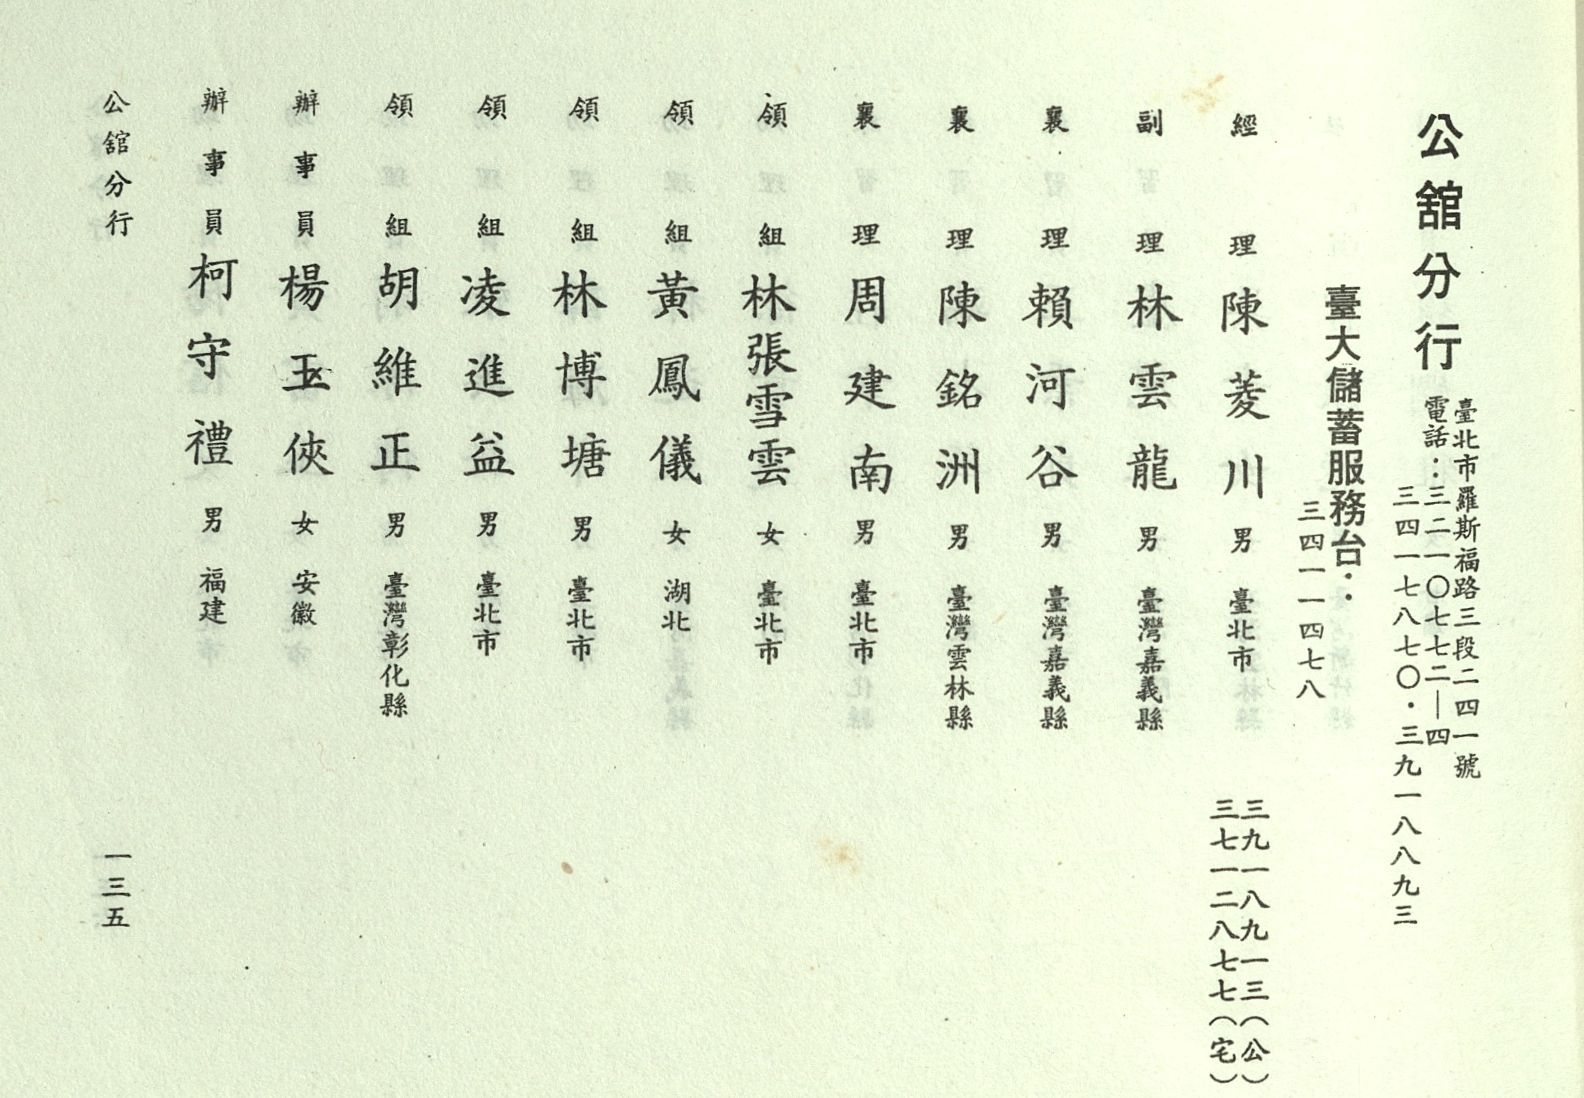 公館分行
臺北市羅斯福路三段二四一號
電話：三二一〇七七二—四
三四一七八七〇・三九一八八九三
臺大儲蓄服務台：
三四一一四七八
經理 陳菱川 男 臺北市 三九一八九一三（公）
三七一二八七七（宅）
副理 林雲龍 男 臺灣嘉義縣
襄理 賴河谷 男 臺灣嘉義縣
襄理 陳銘洲 男 臺灣雲林縣
襄理 周建南 男 臺北市
領組 林張雪雲 女 臺北市
領組 黃鳳儀 女 湖北
領組 林博塘 男 臺北市
領組 凌進益 男 臺北市
領組 胡維正 男 臺灣彰化縣
辦事員 楊玉俠 女 安徽
辦事員 柯守禮 男 福建
公館分行
一三五